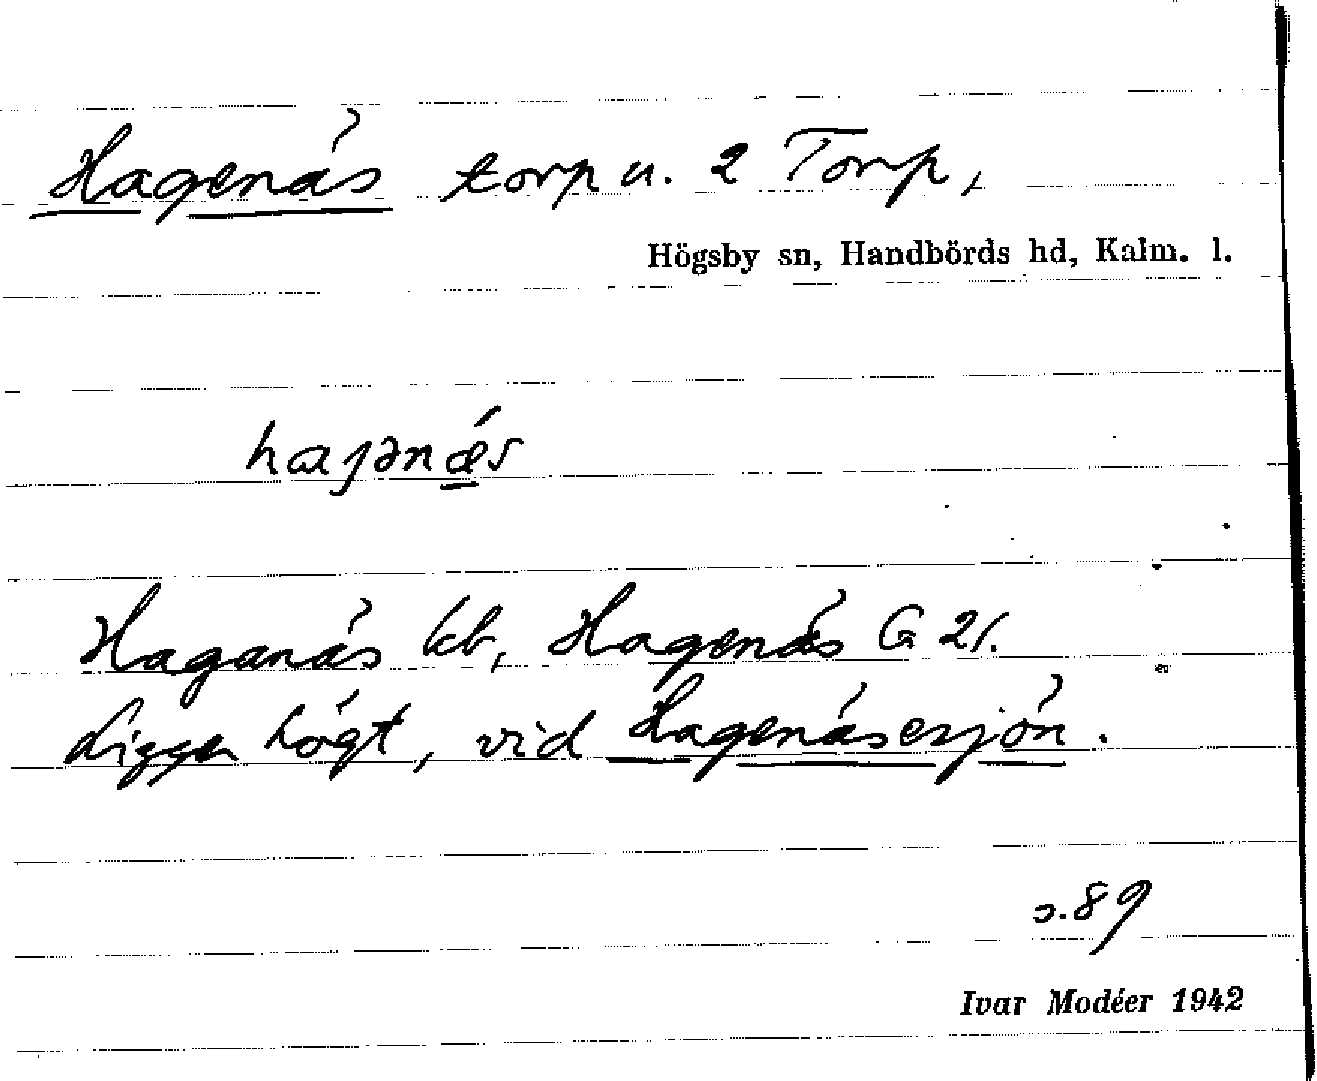 Hagenäs torp u. 2 Torp,
Högsby sn, Handbörds hd, Kalm. l.
haȷənǽs
Haganäs kb, Hagenäs G 21.
Ligger högt, vid Hagenäsesjön.
s. 89
Ivar Modéer 1942